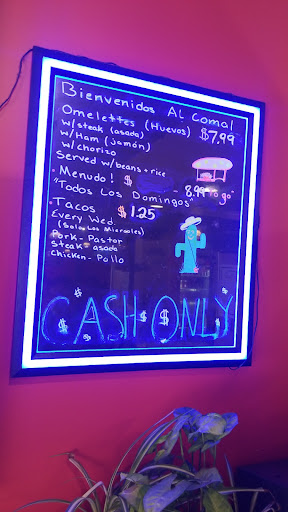 Bienvenidos AL Comal
Omelettes (Huevos) $7.99
w/steak (asada)
w/Ham (jamón)
w/chorizo
Served w/beans+rice
Menudo! $ - 8.99 "to go"
"Todos Los Domingos"
Tacos $1.25
Every Wed.
(Solo Los Miercoles)
Pork-Pastor
Steak-asada
Chicken-Pollo
$CASH ONLY